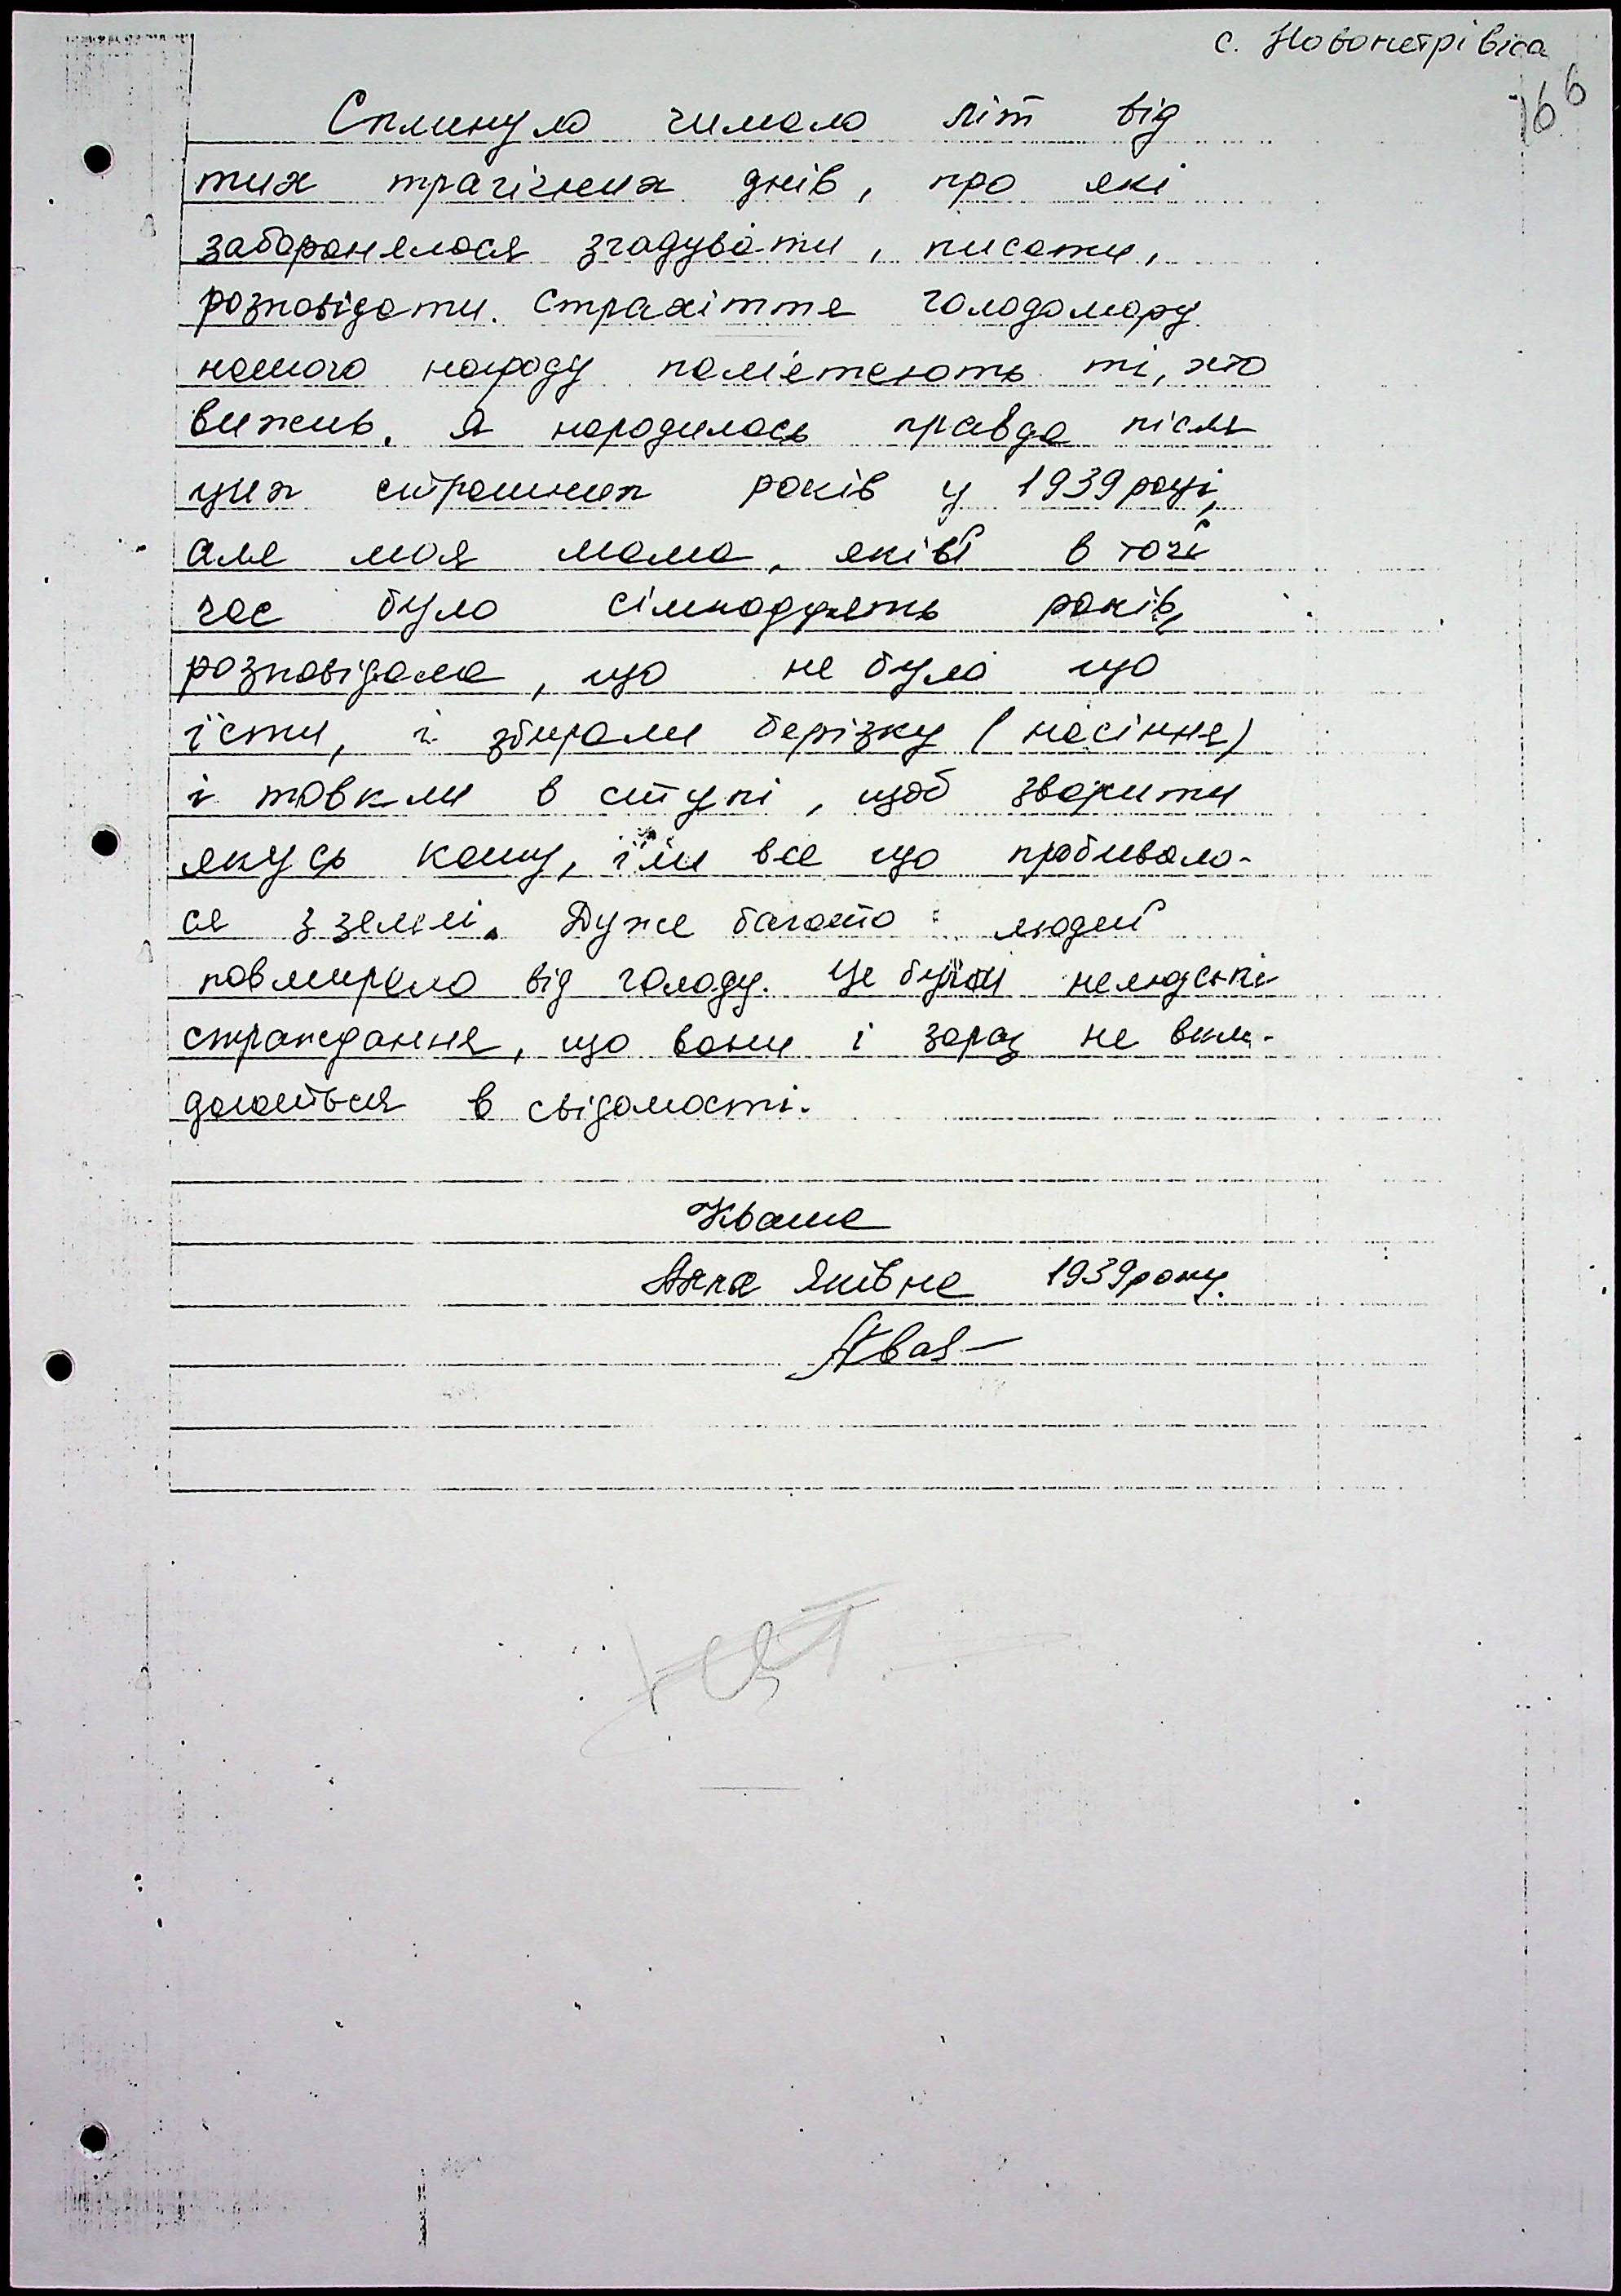 с. Новопетрівка
166
Сплинуло чимало літ від
тих трагічних днів, про які
заборонялося згадувати, писати,
розповідати. Страхіття голодомору
нашого народу памʼятають ті, хто
вижив. Я народилась правда після
цих страшних років у 1939 році,
але моя мама, якій в той
час було сімнадцять років,
розповідала, що не було що
їсти, і збирали берізку (насіння)
і товкли в ступі, щоб зварити
якусь кашу, їли все що пробивало-
ся з землі. Дуже багато людей
повмирало від голоду. Це були нелюдські
страждання, що вони і зараз не вкла-
даються в свідомості.
Кваша
Алла Яківна 1939 року.